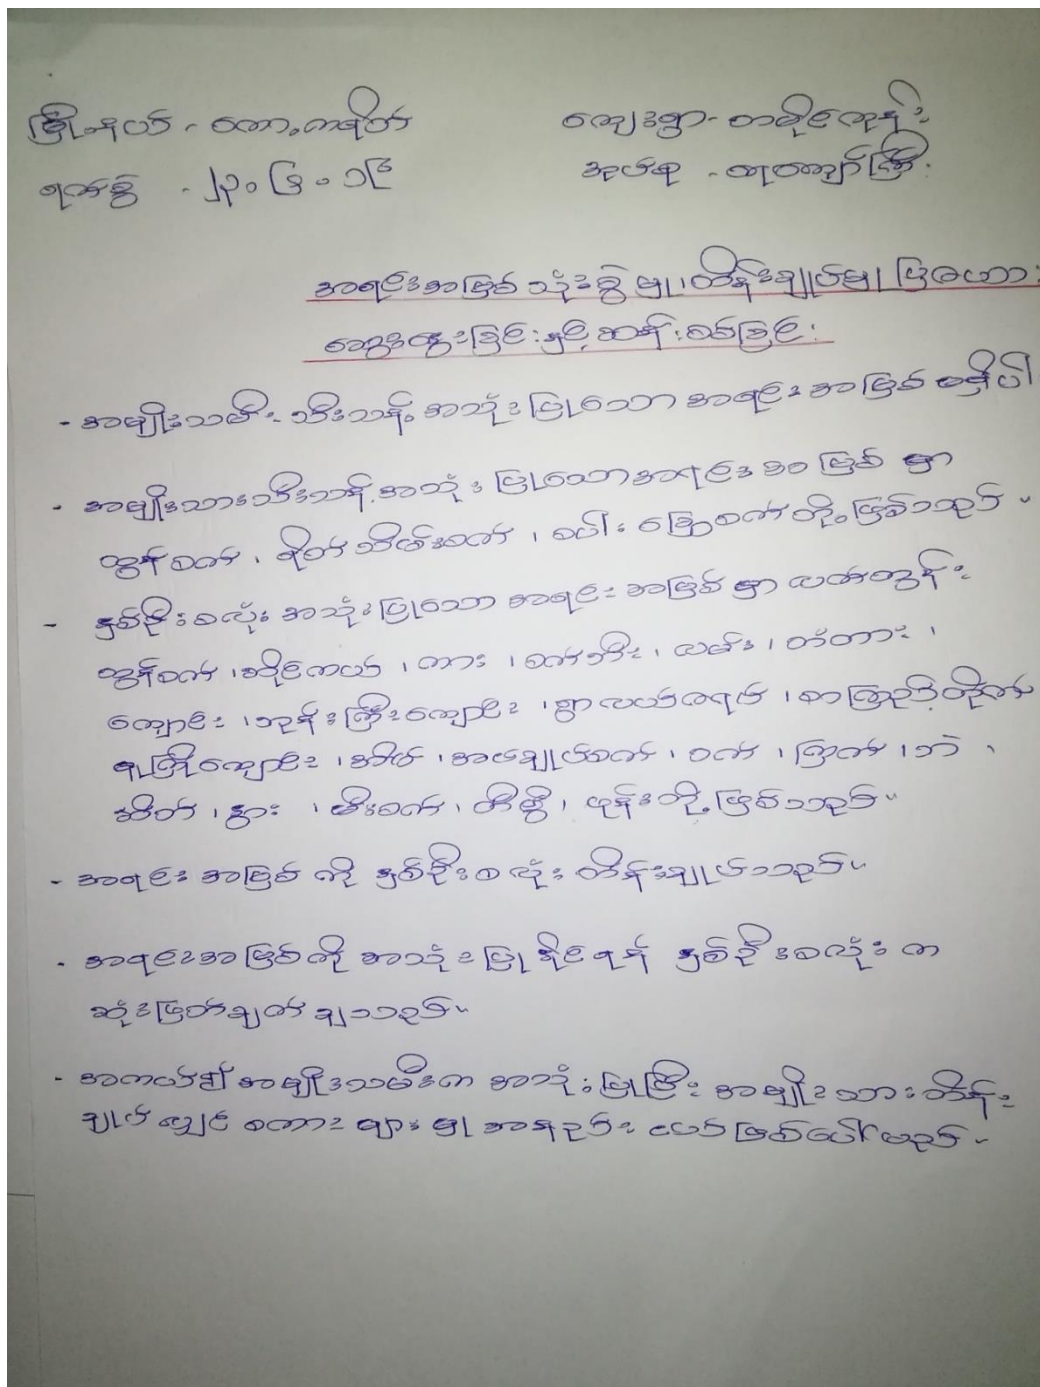 မြို့နယ် - ကော့ကရိတ် ကျေးရွာ - တမိုင်ကုန်း
ရက်စွဲ - ၂၃.၆.၁၆ အုပ်စု - ထုတကျော်ကြီး
အရင်းအမြစ် သုံးစွဲမှု၊ ထိန်းချုပ်မှု ပြဇယား
ဆွေးနွေးခြင်းနှင့် ဆန်းစစ်ခြင်း
- အမျိုးသမီး သီးသန့် အသုံးပြုသော အရင်းအမြစ် မရှိပါ
- အမျိုးသားသီးသန့် အသုံးပြုသောအရင်းအမြစ် မှာ
ထွန်စက်၊ ရိတ်သိမ်းစက်၊ စပါးခြွေစက်တို့ဖြစ်သည်။
- နှစ်ဦးစလုံး အသုံးပြုသော အရင်းအမြစ် မှာ လက်တွန်း
ထွန်စက်၊ ဆိုင်ကယ်၊ ကား၊ စက်ဘီး၊ လမ်း၊ တံတား၊
ကျောင်း၊ ဘုန်းကြီးကျောင်း၊ ရွာလယ်ဇရပ်၊ စာကြည့်တိုက်
မူကြိုကျောင်း၊ အိမ်၊ အပ်ချုပ်စက်၊ ဝက်၊ ကြက်၊ ဘဲ၊
ဆိတ်၊ နွား၊ မီးစက်၊ တီဗွီ၊ ဖုန်းတို့ဖြစ်သည်။
- အရင်းအမြစ်ကို နှစ်ဦးစလုံး ထိန်းချုပ်သည်။
- အရင်းအမြစ်ကို အသုံးပြုနိုင်ရန် နှစ်ဦးစလုံးက
ဆုံးဖြတ်ချက်ချသည်။
- အကယ်၍ အမျိုးသမီးက အသုံးပြုပြီး အမျိုးသားထိန်း
ချုပ်လျှင် စကားများမှု အနည်းငယ်ဖြစ်ပေါ်မည်။